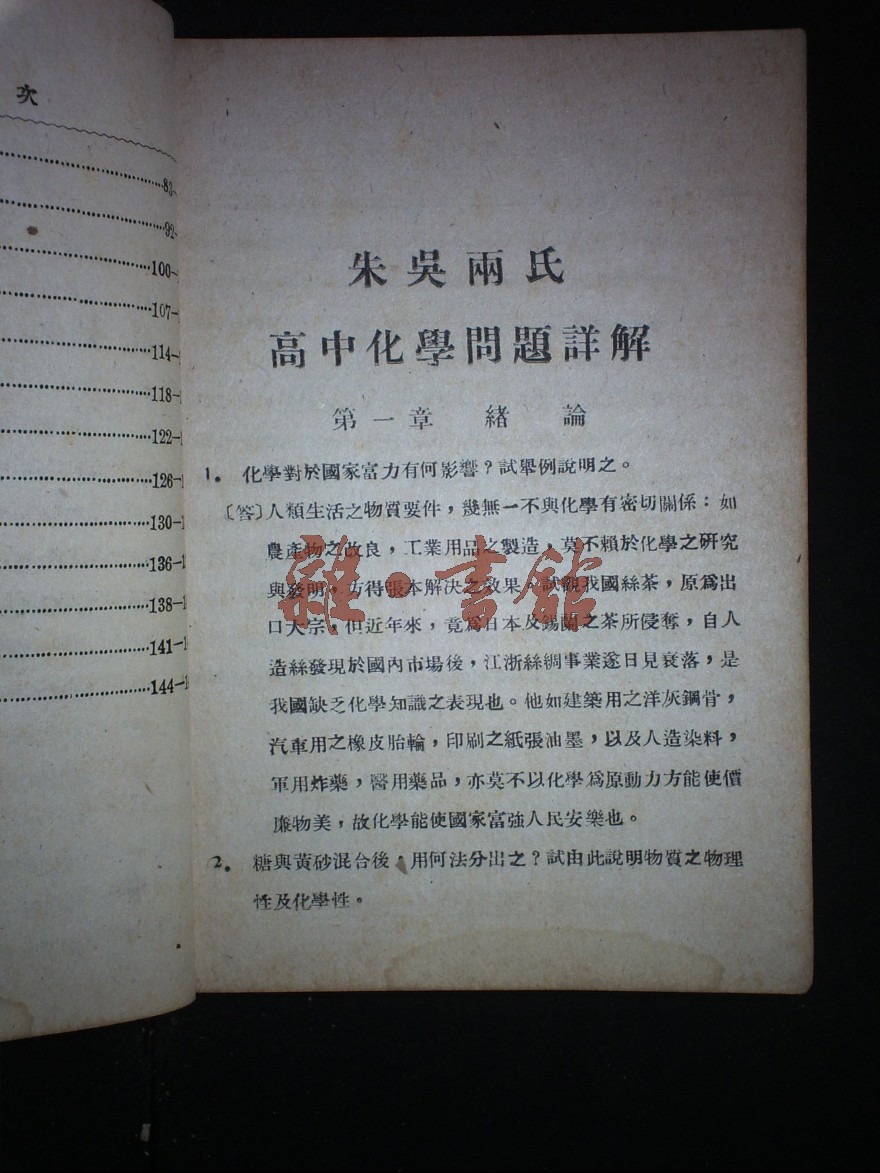 次
83-
92-
100-
107-
114-
118-1
122-
126-1
130-1
136-1
138-1
141-1
144-1
朱吳兩氏
高中化學問題詳解
第一章 緒論
1. 化學對於國家富力有何影響?試舉例說明之。
〔答〕人類生活之物質要件,幾無一不與化學有密切關係:如
農產物之改良,工業用品之製造,莫不賴於化學之研究
與發明,方得張本解決之效果。試觀我國絲茶,原爲出
口大宗,但近年來,竟爲日本及錫蘭之茶所侵奪,自人
造絲發現於國內市場後,江浙絲綢事業遂日見衰落,是
我國缺乏化學知識之表現也。他如建築用之洋灰鋼骨,
汽車用之橡皮胎輪,印刷之紙張油墨,以及人造染料,
軍用炸藥,醫用藥品,亦莫不以化學爲原動力方能使價
廉物美,故化學能使國家富強人民安樂也。
2. 糖與黃砂混合後,用何法分出之?試由此說明物質之物理
性及化學性。
雜·書館